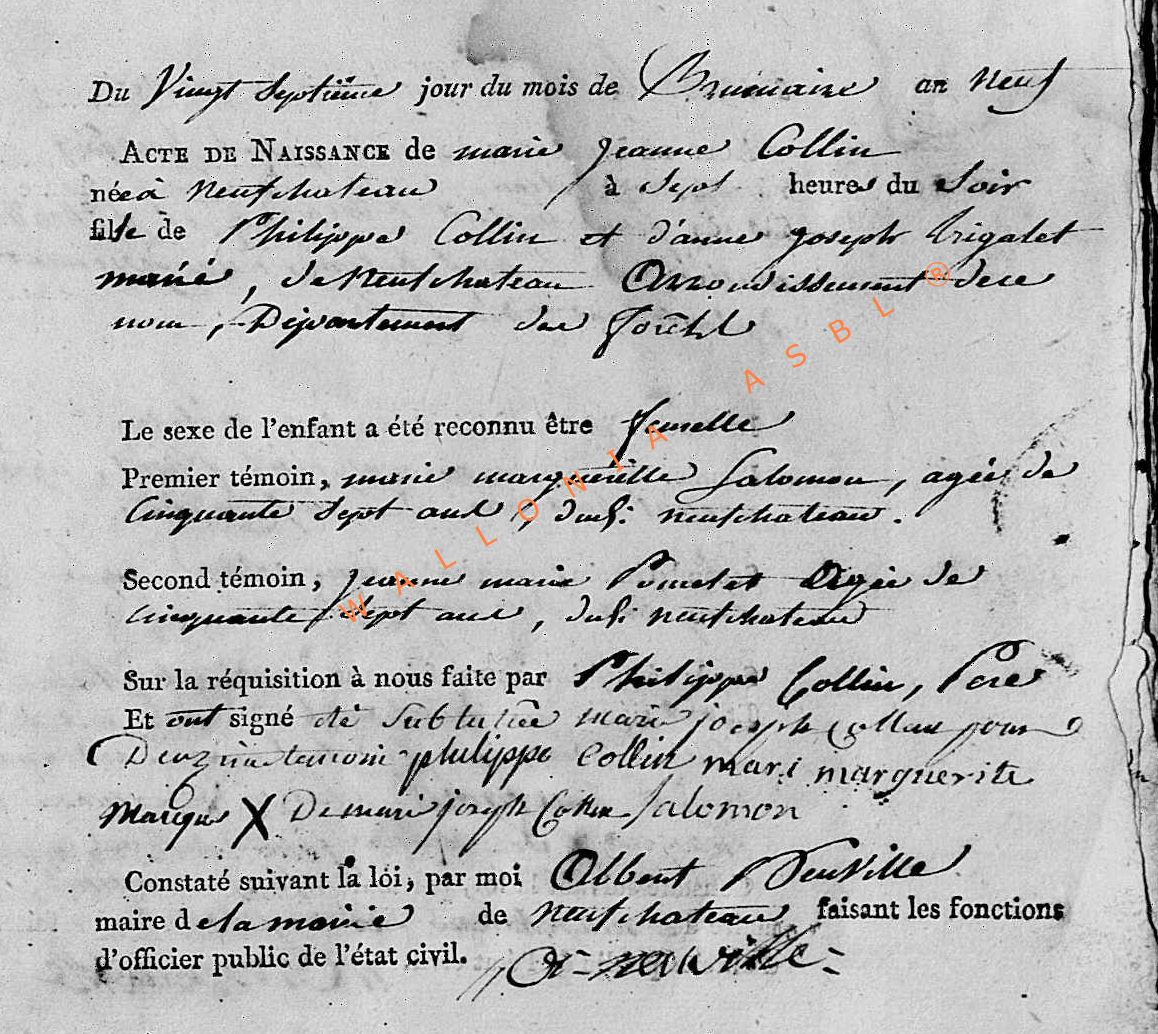 Du Vingt Septième jour du mois de Brumaire an Neuf
ACTE DE NAISSANCE de marie jeanne Collin
née à Neufchateau à Sept heures du Soir
fille de Philippe Collin et d'anne joseph Trigalet
mariés, de Neufchateau Arrondissement de ce
nom, Département des forêts
Le sexe de l'enfant a été reconnu être femelle
Premier témoin, marie margueritte Salomon, agée de
Cinquante Sept ans, dudi. neufchateau.
Second témoin, jeanne marie Agée de
Cinquante Sept ans, dudi neufchateau
Sur la réquisition à nous faite par Philippe Collin, Pere
Et ont signé été marie joseph pour
philippe Collin mari marguerite
Marque X De marie joseph Salomon
Constaté suivant la loi, par moi Albert Neuville
maire de la mairie de neufchateau faisant les fonctions
d'officier public de l'état civil. A: neuville
WALLONIA ASBL ®